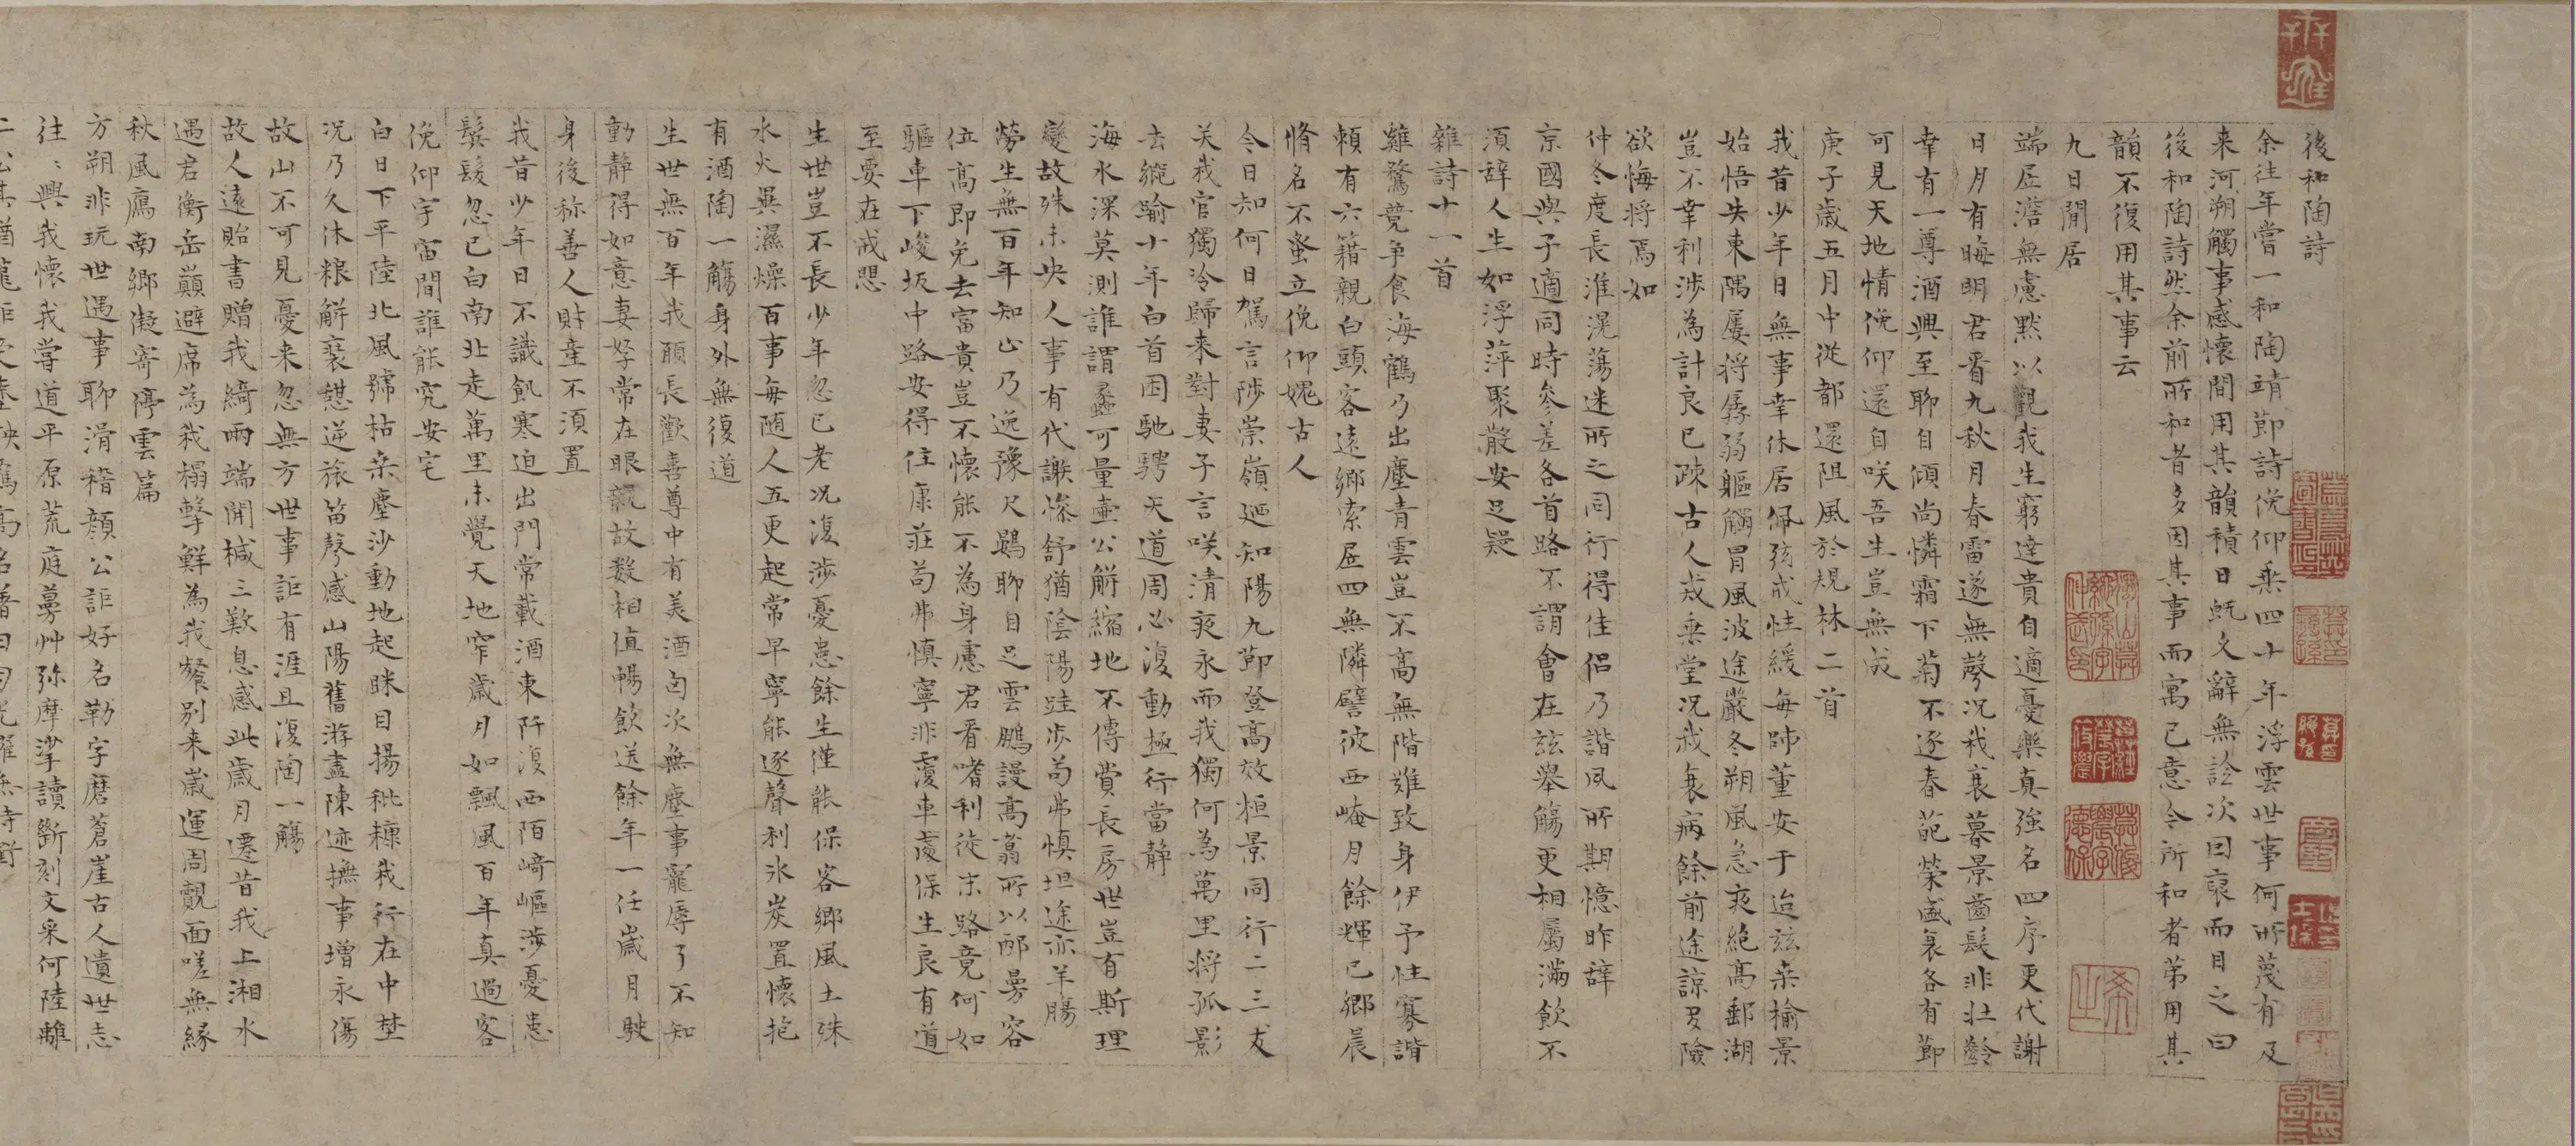 後和陶詩
余往年嘗一和陶靖節詩俛仰垂四十年浮雲世事何所蔑有及
来河朔觸事感懷間用其韻積日旣久辭無詮次因裒而目之曰
後和陶詩然余前所和者多因其事而寓己意今所和者苐用其
韻不復用其事云
九日閒居
端居澹無慮默以觀我生窮達貴自適憂樂真強名四序更代謝
日月有晦明君看九秋月春雷遂無聲况我衰暮景齒髮非壯齡
幸有一尊酒興至聊自傾尚憐霜下菊不逐春葩榮盛衰各有節
可見天地情俛仰還自咲吾生豈無成
庚子歲五月中從都還阻風於規林二首
我昔少年日無事幸休居佩弦戒性緩每師董安于迨兹桑榆景
始悟失東隅屡将孱弱軀觸冒風波途嚴冬朔風急夜絶高郵湖
豈不幸利涉為計良已踈古人戎垂堂况我衰病餘前途諒多險
欲悔将焉如
仲冬度長淮滉蕩迷所之同行得佳侣乃諧夙所期憶昨辞
京國與子適同時參差各首路不謂會在兹舉觴更相屬滿飲不
須辞人生如浮萍聚散安足疑
雜詩十一首
雞鶩競争食海鶴乃出塵青雲豈不高無階難致身伊予性寡諧
頼有六籍親白頭客遠鄉索居四無隣譬彼西崦月餘輝已鄉晨
脩名不蚤立俛仰媿古人
今日知何日駕言陟崇嶺廼知陽九節登高效桓景同行二三友
关我官獨冷歸来對妻子言咲清夜永而我獨何為萬里将孤影
去縦踰十年白首困馳騁天道周必復動極行當静
海水深莫測誰謂蠡可量壷公解縮地不傳費長房世豈有斯理
變故殊未央人事有代謝慘舒猶陰陽跬步苟弗慎坦途亦羊腸
勞生無百年知止乃逸豫尺鷃聊自足雲鵬謾高翥所以邴曼容
位高即免去富貴豈不懷能不為身慮君看嗜利徒末路竟何如
驅車下峻坂中路安得住康莊苟弗慎寧非覆車處保生良有道
至要在戒懼
生世豈不長少年忽已老况復涉憂患餘生僅能保客鄉風土殊
水火異濕燥百事每随人五更起常早寧能逐聲利氷炭置懷抱
有酒陶一觴身外無復道
生世無百年我願長歡喜尊中有美酒囱次無塵事寵辱了不知
動静得如意妻孥常在眼親故数相值暢飲送餘年一任歲月駛
身後称善人財産不須置
我昔少年日不識飢寒迫出門常載酒東阡復西陌﨑嶇涉憂患
鬓髮忽已白南北走萬里未覺天地窄歲月如飄風百年真過客
俛仰宇宙間誰能究安宅
白日下平陸北風號枯桒塵沙動地起眯目揚秕糠我行在中埜
况乃久休粮解裘憇逆旅笛聲感山陽舊游盡陳迹撫事增永傷
故山不可見憂来忽無方世事詎有涯且復陶一觴
故人遠貽書贈我綺兩端開椷三歎息感此歲月遷昔我上湘水
遇君衡岳巔避席為我榻擊鮮為我餐别来歲運周覿面嗟無縁
秋風鴈南鄉凝寄停雲篇
方朔非玩世遇事聊滑稽顔公詎好名勒字磨蒼崖古人遺世志
往〻興我懷我嘗道平原荒庭蔓艸弥摩挲讀斷刻文采何陸離